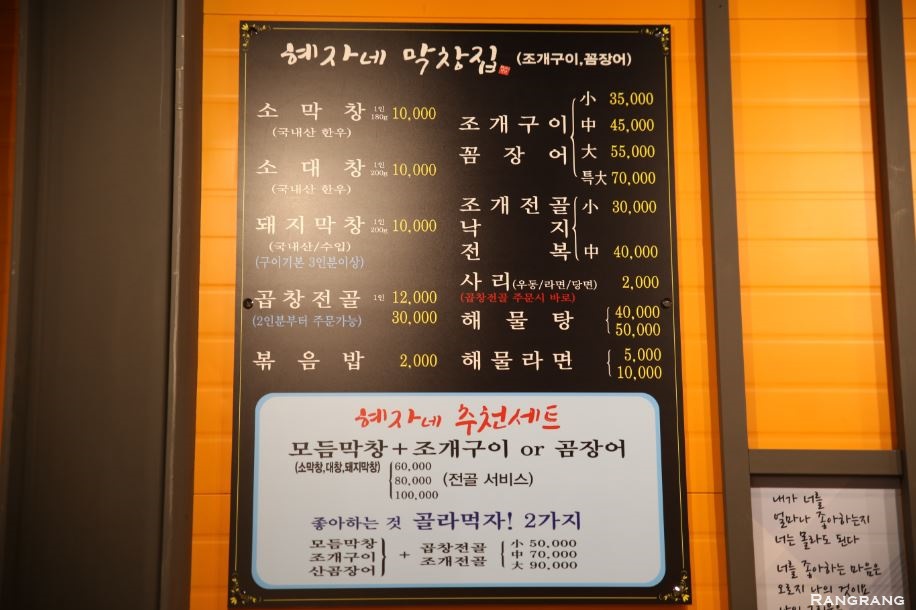 혜자네 막창집 (조개구이,꼼장어)
소막창 1인 180g 10,000
(국내산 한우)
소대창 1인 200g 10,000
(국내산 한우)
돼지막창 1인 200g 10,000
(국내산/수입)
(구이기본 3인분이상)
곱창전골 1인 12,000
(2인분부터 주문가능) 30,000
볶음밥 2,000
조개구이
꼼장어
小 35,000
中 45,000
大 55,000
特大 70,000
조개전골 小 30,000
낙지
전복 中 40,000
사리(우동/라면/당면) 2,000
(곱창전골 주문시 바로)
해물탕 40,000
50,000
해물라면 5,000
10,000
혜자네 추천세트
모듬막창+조개구이 or 곰장어
(소막창,대창,돼지막창) 60,000
80,000 (전골 서비스)
100,000
좋아하는 것 골라먹자! 2가지
모듬막창
조개구이
산곰장어
+ 곱창전골
조개전골
小 50,000
中 70,000
大 90,000
내가 너를
얼마나 좋아하는지
너는 몰라도 된다
너를 좋아하는 마음은
오로지 나의 것이요
RANGRANG